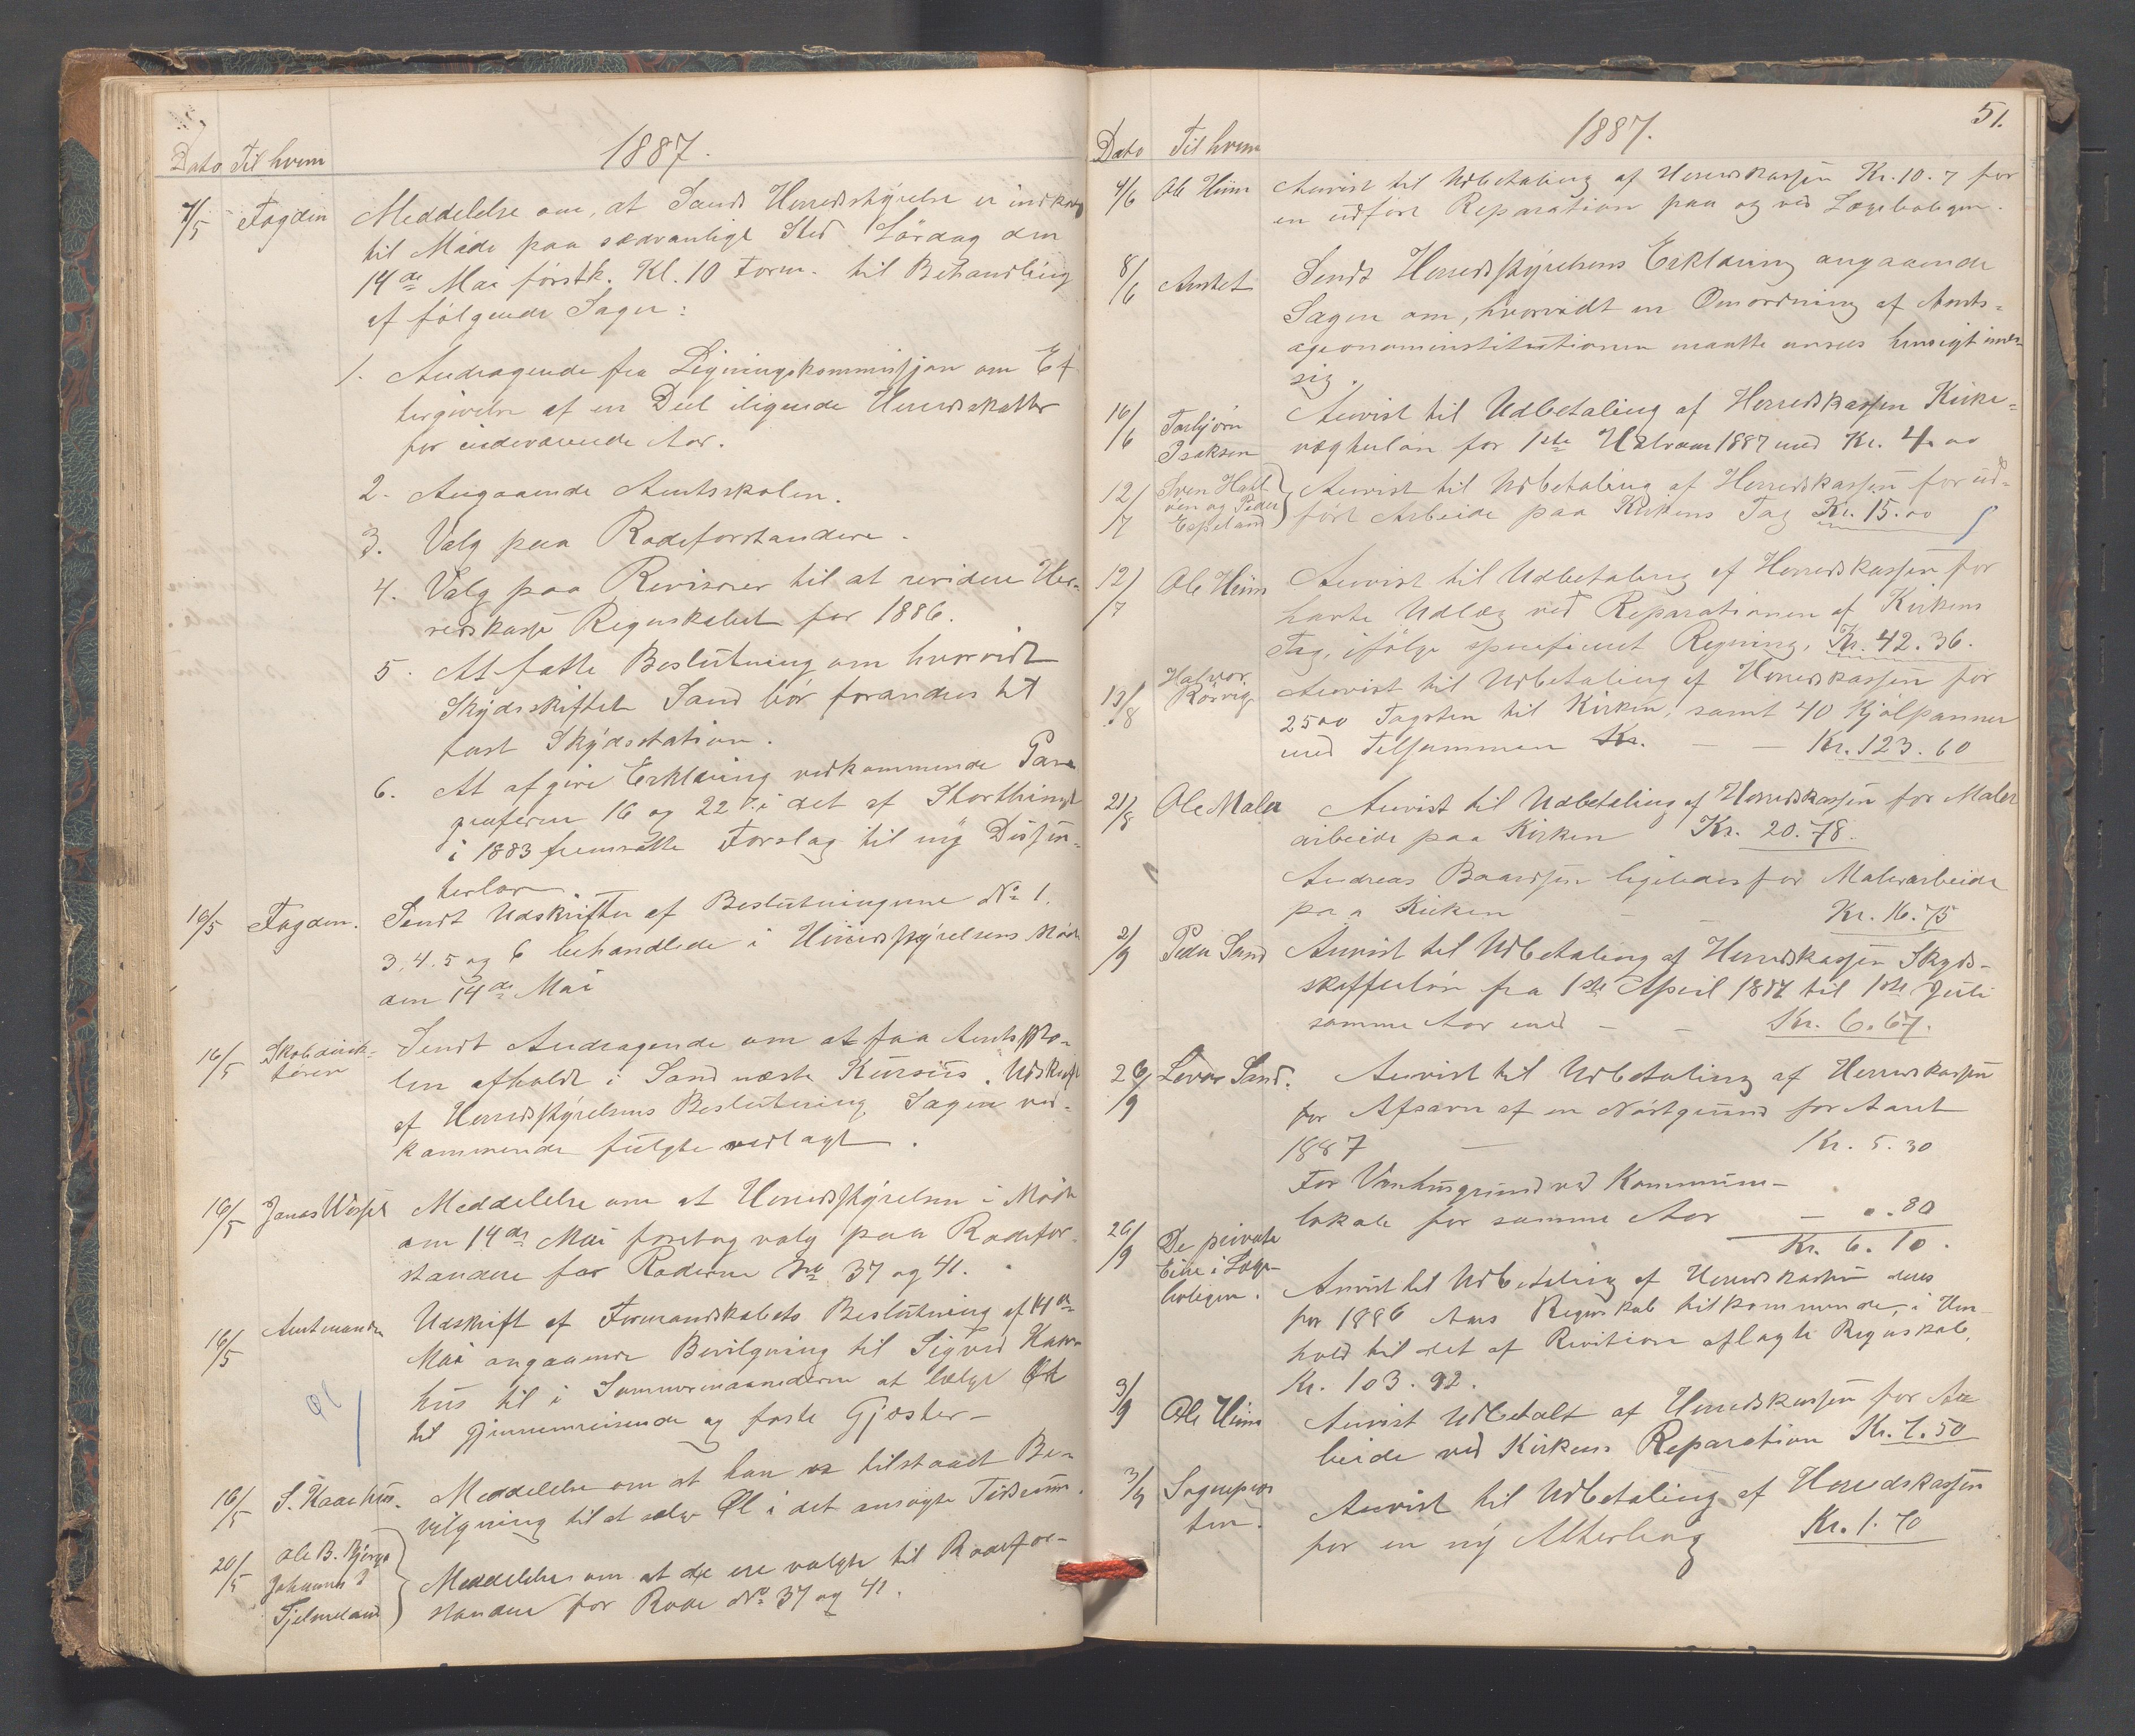 1887.
Dato Til hvem
7/5 Fogden Meddelelse om, at Sands Herredsstyrelse er indkaldt
til Møde paa sædvanligt Sted Lørdag den
14de Mai førstk. Kl. 10 Form. til Behandling
af følgende Sager:
1. Andragende fra Ligningskommissjon om Ef-
tergivelse af en Deel iligende Herredsskatter
for indeværende Aar.
2. Angaaende Amtsskolen.
3. Valg paa Rodeforstandere.
4. Valg paa Revisorer til at revidere Her-
redskasse Regnskabet for 1886.
5. At fatte Beslutning om hvorvidt
Skydsskiftet Sand bør forandres til
fast Skydsstation.
6. At afgive Erklæring vedkommende Para
graferne 16 og 22 i det af Storthinget
i 1883 fremsatte Forslag til ny Dissen-
terlov.
16/5 Fogden. Sendt Udskrifter af Beslutningerne No 1.
3. 4. 5 og 6 behandlede i Herredsstyrelsens Møde
den 14de Mai
16/5 Skoledirek-
tøren Sendt Andragende om at faa Amtssko-
len afholdt i Sand næste Kursus. Udskrift
af Herredsstyrelsens Beslutning Sagen ved-
kommende fulgte vedlagt.
16/5 Jonas Meddelelse om at Herredsstyrelsen i Møde
den 14de Mai foretog valg paa Rodefor-
standere for Roderne No 37 og 41.
16/5 Amtmanden Udskrift af Formandskabets Beslutning af 14de
Mai angaaende Bevilgning til Sigvad Kaar-
hus til i Sommermaanederne at sælge Øl
til gjennemreisende og faste Gjæster-
16/5 S. Kaarhus. Meddelelse om at han er tilstaaet Be-
vilgning til at sælge Øl i det ansøgte Tidsrum.
20/5 Ole B. Bjerga
Johannes J
Tjelmeland Meddelelse om at de ere valgte til Rodefor-
standere for Rode No 37 og 41.
51.
1887.
Dato Til hvem
4/6 Ole Hiim Anvist til Udbetaling af Herredskassen Kr. 10.7 for
en udført Reparation paa og ved Lægeboligen.
8/6 Amtet Sendt Herredsstyrelsens Erklæring angaaende
Sagen om, hvorvidt en Omordning af Amts-
agronominstitutionen maatte ansees hensigtsmæs-
sig.
16/6 Torbjørn
Isaksen Anvist til Udbetaling af Herredskassen Kirke-
vægterløn for 1ste Halvaar 1887 med Kr. 4.00
12/7 Sven
og Peder
Espeland Anvist til Udbetaling af Herredskassen for ud-
ført Arbeide paa Kirkens Tag Kr. 15.00
12/7 Ole Hiim Anvist til Udbetaling af Herredskassen for
havte Udlæg ved Reparationen af Kirkens
Tag, ifølge specificeret Regning, Kr. 42.36.
13/8 Halvor
Rørvig Anvist til Udbetaling af Herredskassen for
2500 Tagsten til Kirken, samt 40 Kjølpanner
med Tilsammen Kr. - - Kr. 123.60
21/8 Ole Maler Anvist til Udbetaling af Herredskassen for Maler
arbeide paa Kirken Kr. 20.78.
Andreas Baardsen ligeledes for Malerarbeide
paa Kirken - - Kr. 16.75
2/9 Peder Sand Anvist til Udbetaling af Herredskassen Skyds-
skafferløn fra 1ste April 1887 til 1ste Juli
samme Aar med - - Kr. 6.67.
26/9 Lovar Sand. Anvist til Udbetaling af Herredskassen
for Afsavn af en Nøstgrund for Aaret
1887 - Kr. 5.30
For Vanhusgrund ved Kommune-
lokale for samme Aar - 0.80
Kr. 6.10.
26/9 De private
Eiere i Læge-
boligen. Anvist til Udbetaling af Herredskassen deres
for 1886 Aars Regnskab tilkommende, i Hen-
hold til det af Revition aflagte Regnskab,
Kr. 103.92.
3/9 Ole Hiim Anvist Udbetalt af Herredskassen for Ar
beide ved Kirkens Reparation Kr. 7.50
3/9 Sogneprer
ten. Anvist til Udbetaling af Herredskassen
for en ny Alterbog Kr. 1.70